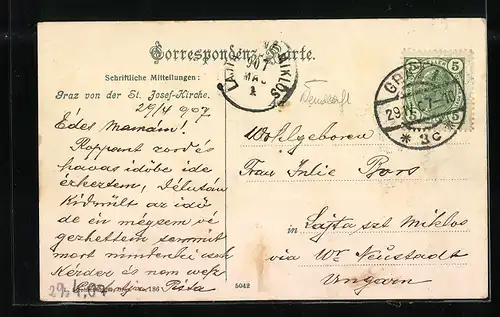 Correspondenz-Karte.
Schriftliche Mitteilungen:
Graz von der St. Josef-Kirche.
29/4 907
Édes Mamám!
Roppant rossz és
havas időbe ide
érkeztem, Délután
kiderült az idő
de én mégsem vé
gezhettem semmit
mert mindenki csak
kérdez és nem vesz
Pista
29.4.07
5042
Wohlgeboren
Frau Julie Bors
in Lajta szt Miklos
via Wr Neustadt
Ungarn
LAJTA
MIKLÓS
907
GRAZ
29.IV.
* 3c *
5
5